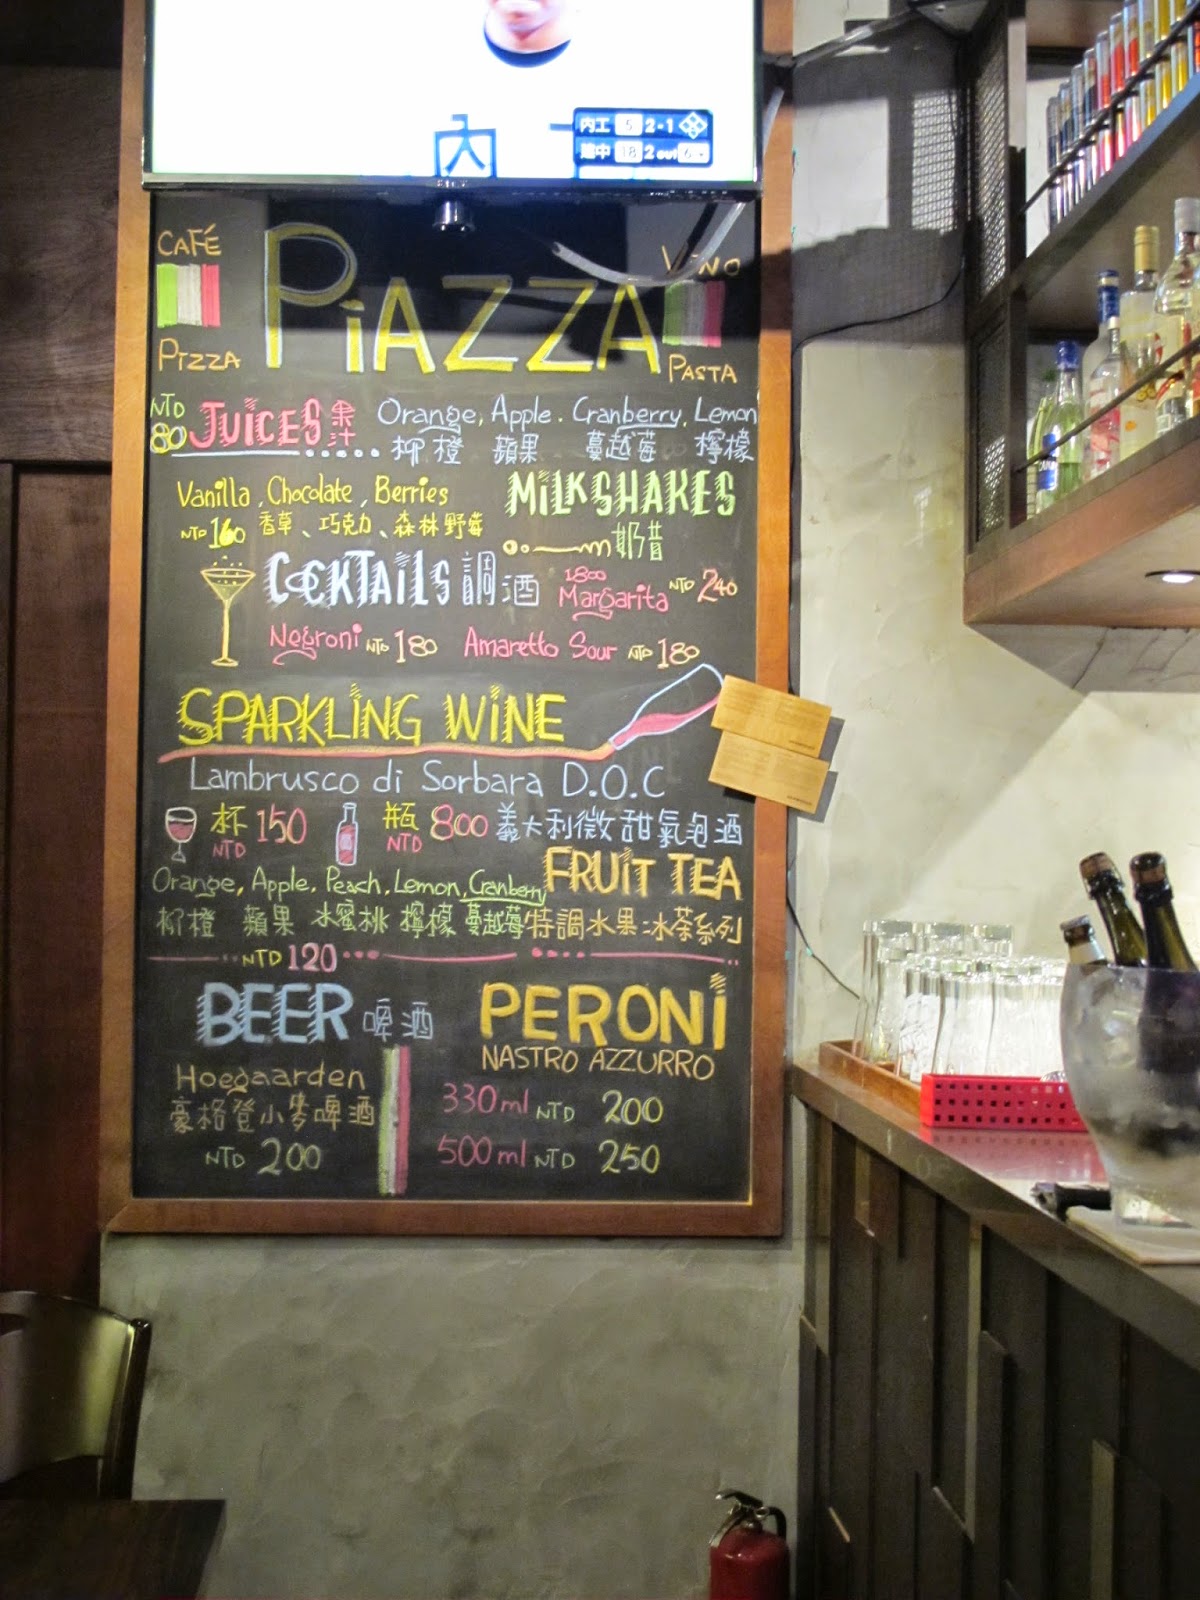 内工 5 2-1
建中 18 2 out
内
CAFÉ PiAZZA VINO
PIZZA PASTA
NTD 80 JUiCES 果汁 Orange, Apple. Cranberry, Lemon
柳橙 蘋果 蔓越莓 檸檬
Vanilla, Chocolate, Berries MiLKSHAKES
NTD 160 香草、巧克力、森林野莓 奶昔
COCKTAiLS 調酒 1800 Margarita NTD 240
Negroni NTD 180 Amaretto Sour NTD 180
SPARKLiNG WiNE
Lambrusco di Sorbara D.O.C
杯 NTD 150 瓶 NTD 800 義大利微甜氣泡酒
Orange, Apple, Peach, Lemon, Cranberry FRUiT TEA
柳橙 蘋果 水蜜桃 檸檬 蔓越莓 特調水果冰茶系列
NTD 120
BEER 啤酒 PERONi
NASTRO AZZURRO
Hoegaarden 330ml NTD 200
豪格登小麥啤酒
NTD 200 500ml NTD 250